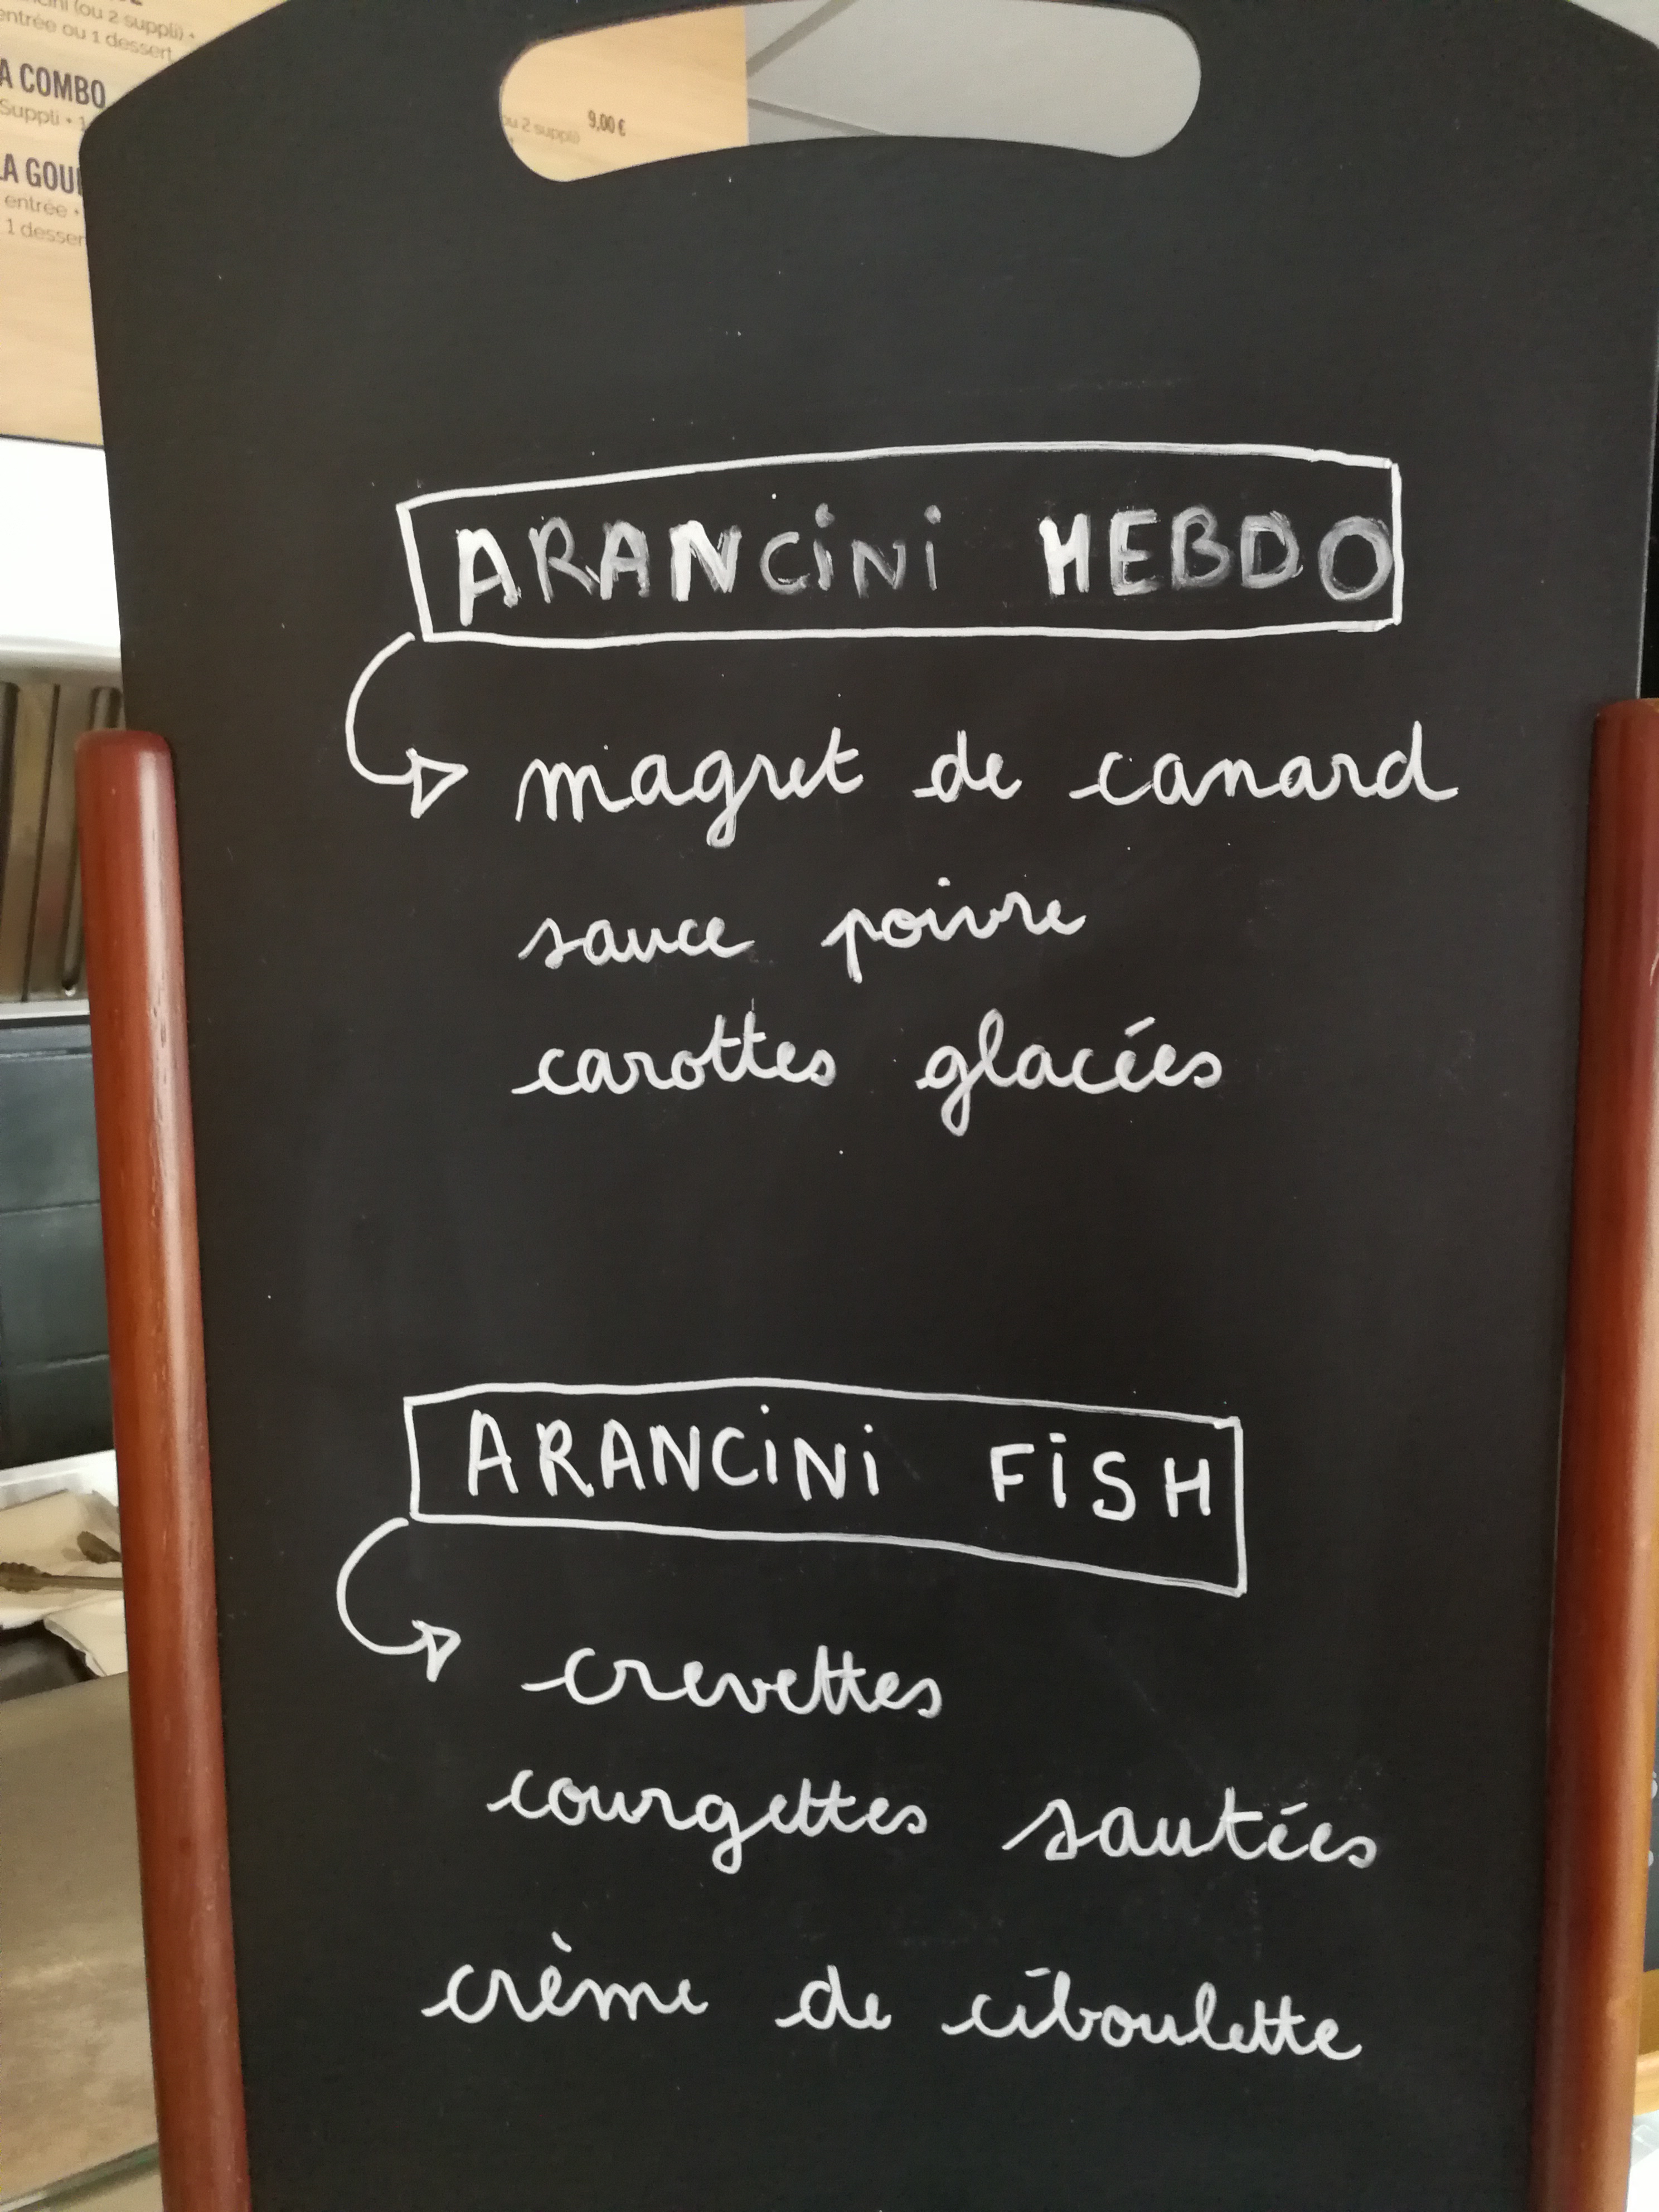 (ou 2 suppli) •
entrée ou 1 dessert
A COMBO
Suppli • 1
LA GOU
entrée •
1 desser
ou 2 suppli) 9,00 €
ARANCiNi HEBDO
magret de canard
sauce poivre
carottes glacées
ARANCiNi FiSH
crevettes
courgettes sautées
crème de ciboulette